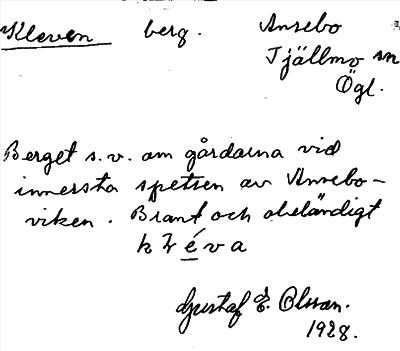 Kleven berg. Ansebo
Tjällmo sn
Ögl.
Berget s.v. om gårdarna vid
innersta spetsen av Ansebo-
viken. Brant och obeländigt
k l é v a
Gustaf E. Olsson.
1928.